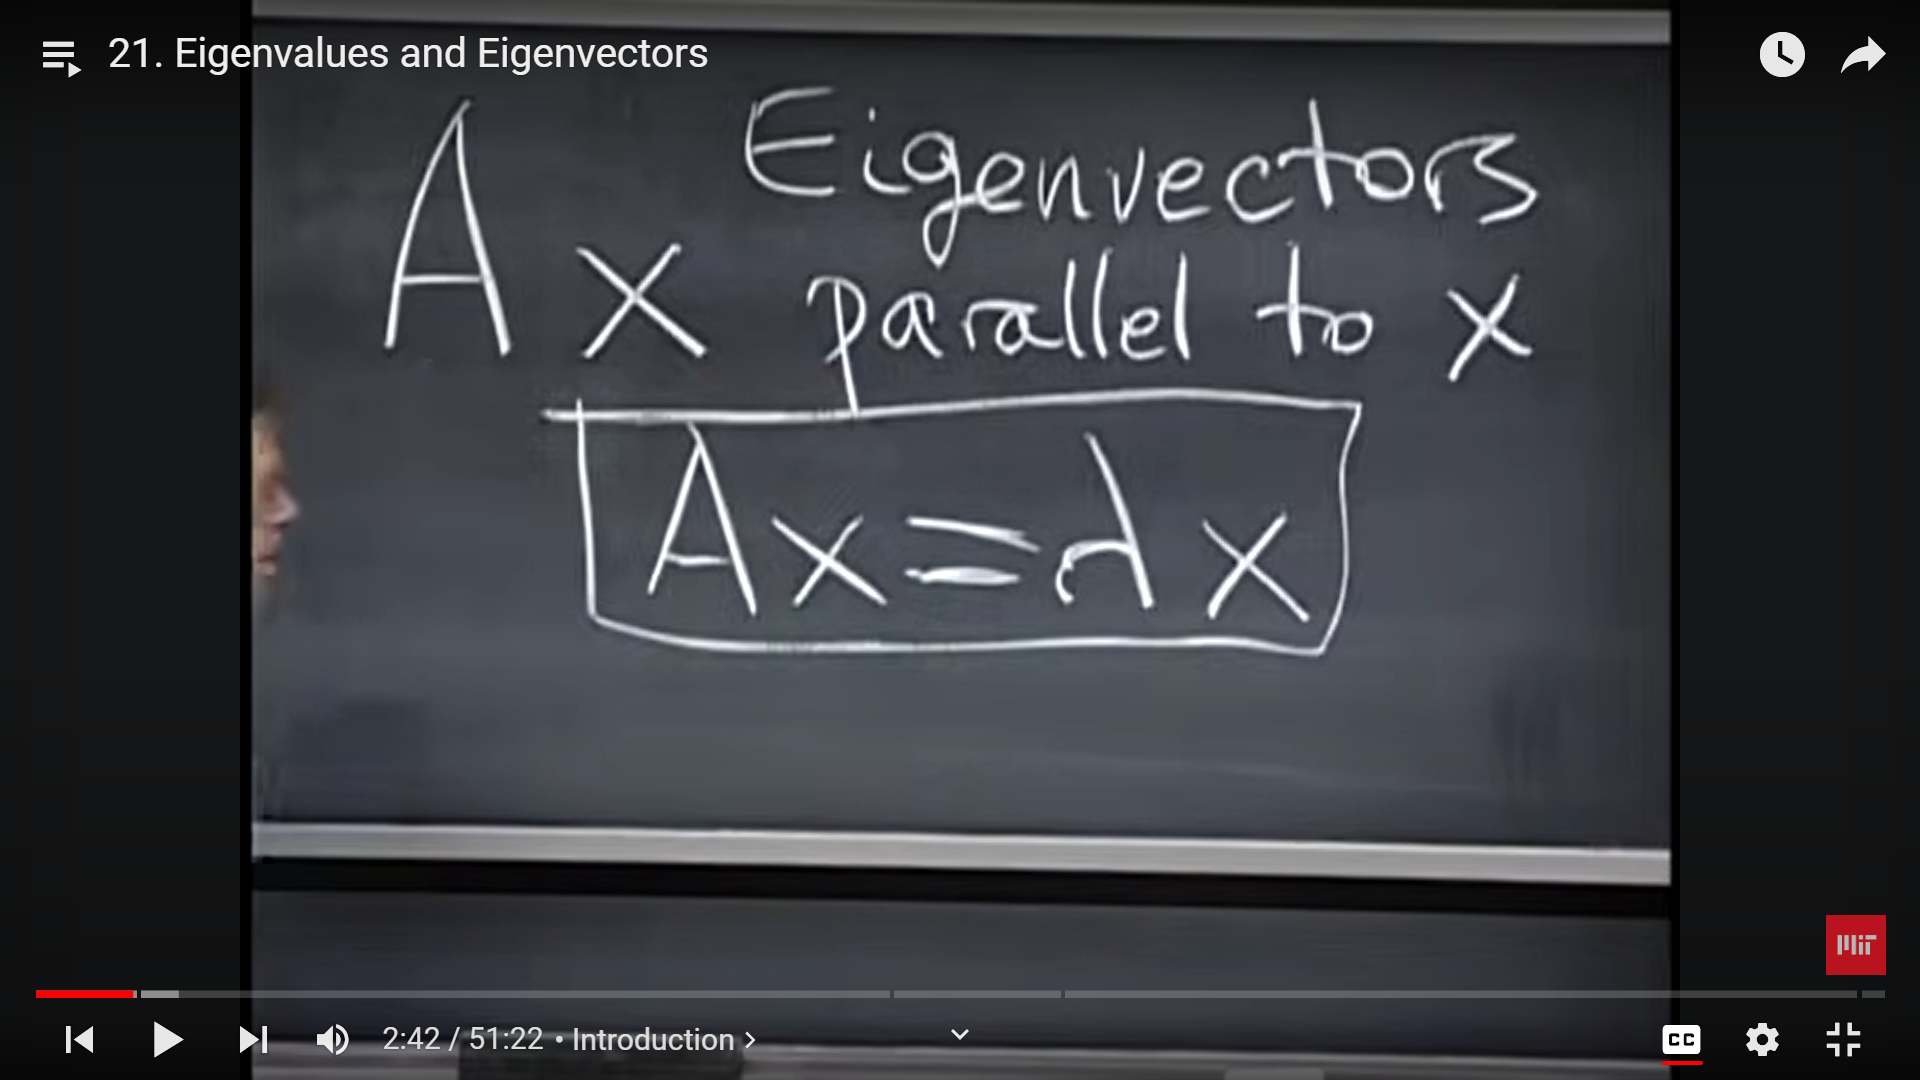 21. Eigenvalues and Eigenvectors
Eigenvectors
Ax parallel to x
Ax=λx
MIT
2:42 / 51:22 • Introduction
CC